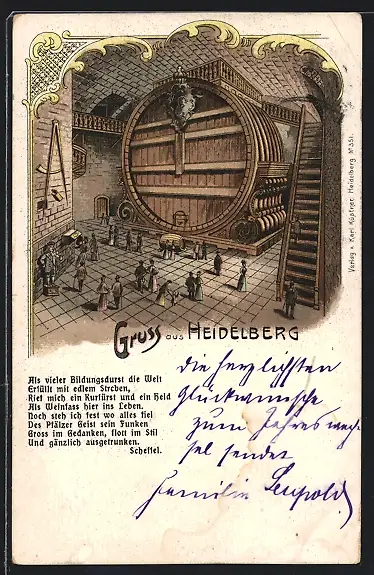 Gruss aus HEIDELBERG
Als vieler Bildungsdurst die Welt
Erfüllt mit edlem Streben,
Rief mich ein Kurfürst und ein Held
Als Weinfass hier ins Leben.
Noch steh ich fest wo alles fiel
Des Pfälzer Geist sein Funken
Gross im Gedanken, flott im Stil
Und gänzlich ausgetrunken.
Scheffel.
die herzlichsten
Glückwünsche
zum Jahreswech
sel sendet
Familie Leupold
Verlag v. Karl Küpfrer, Heidelberg Nº 351.